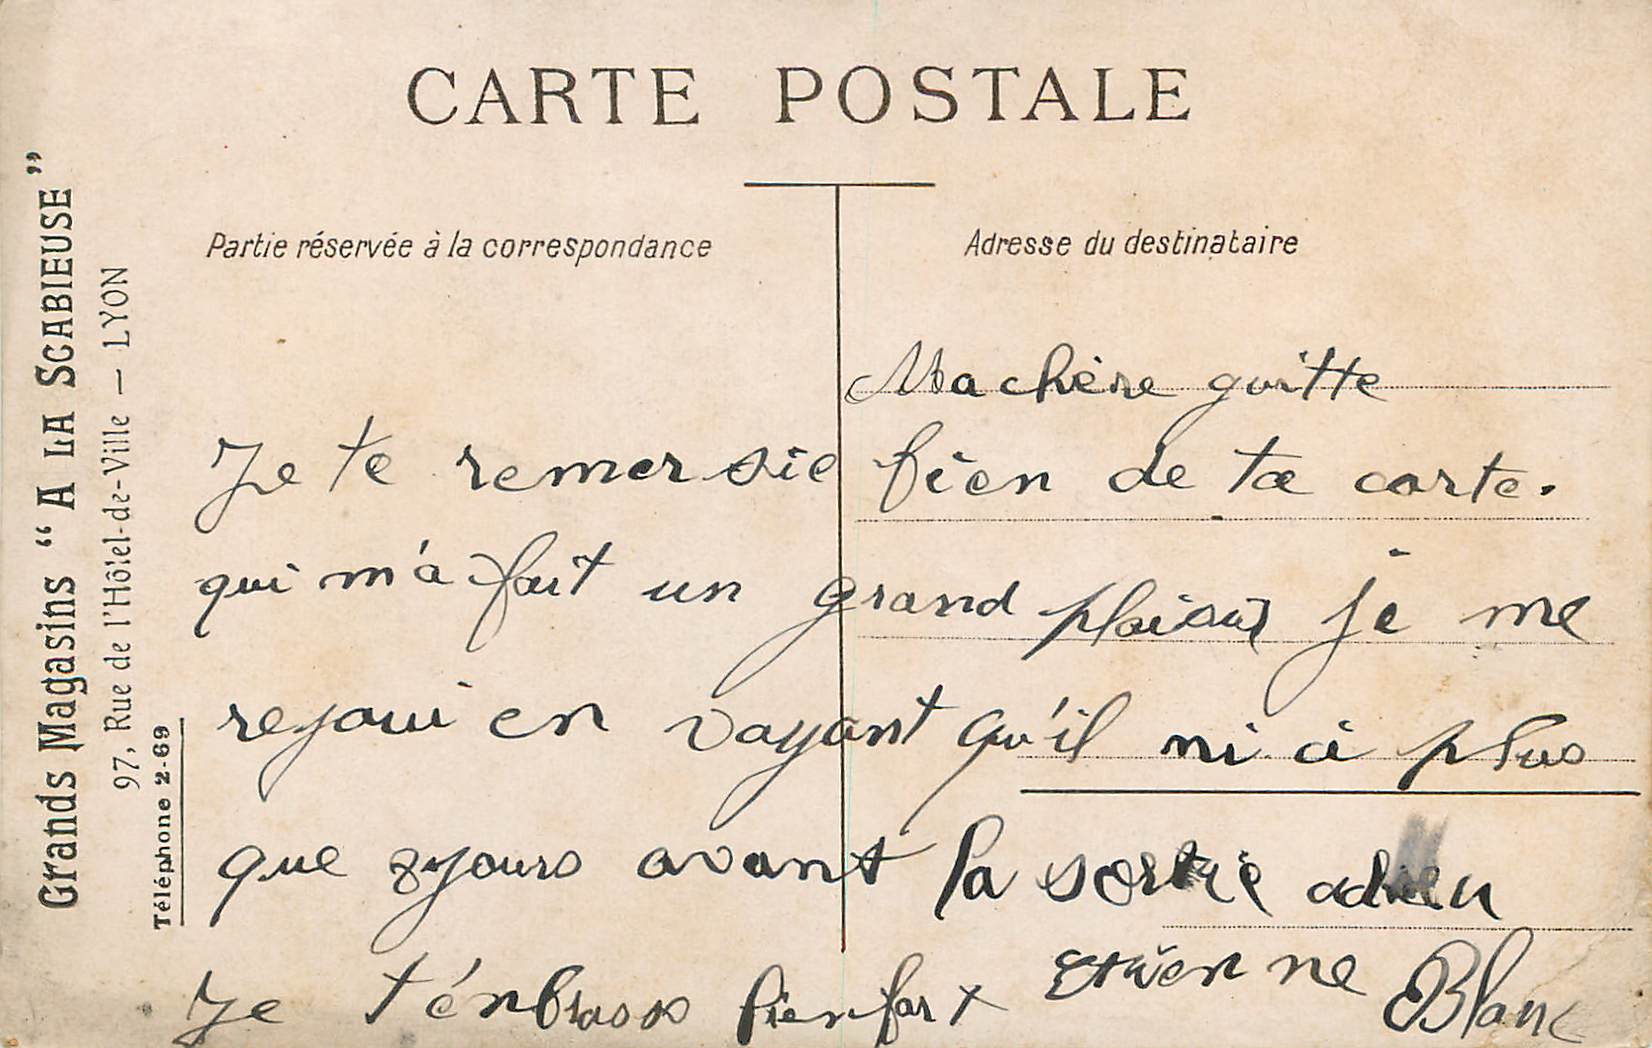 CARTE POSTALE
Grands Magasins “A LA SCABIEUSE”
97, Rue de l'Hôtel-de-Ville — LYON
Téléphone 2-69
Partie réservée à la correspondance
Adresse du destinataire
Ma chère guitte
Je te remersie bien de ta carte.
qui m'a fait un grand plaisir je me
rejoui en vayant qu'il ni a plus
que 8 jours avant la sortie adieu
Je t'énbrasse bien fort Etienne Blanc